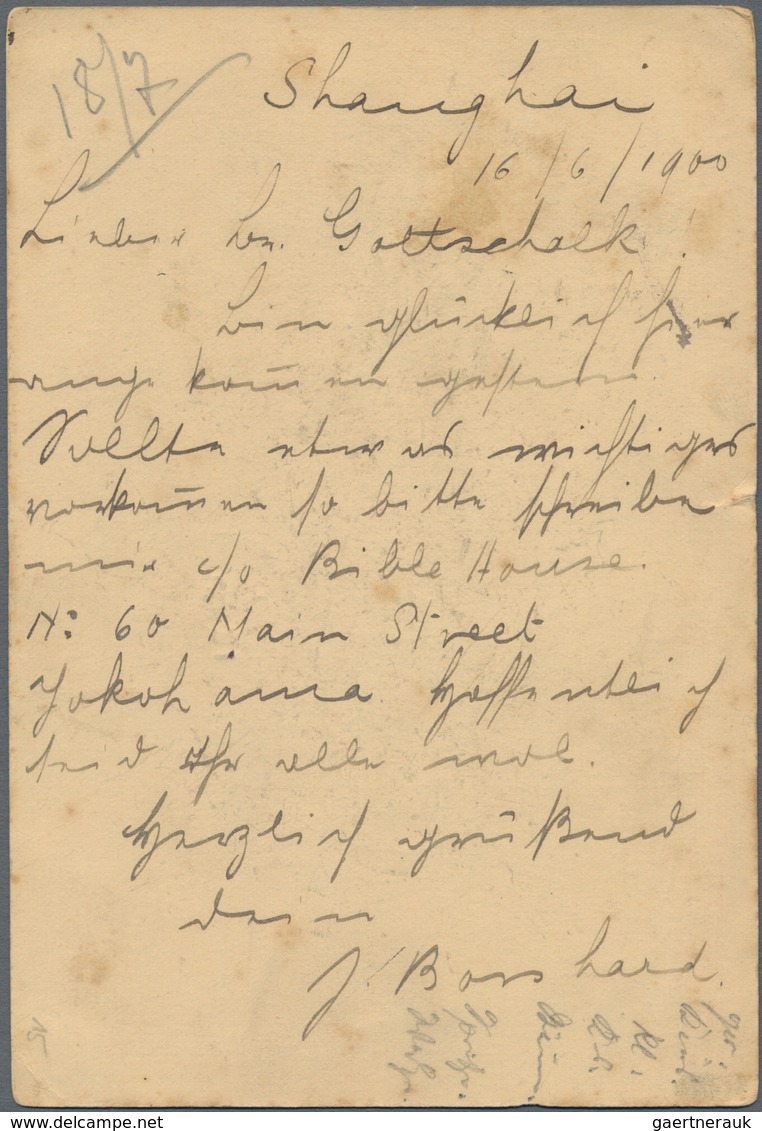 18/7
Shanghai
16/6/1900
Lieber Br. Gottschalk!
bin glücklich hier
angekom̅en gestern.
Sollte etwas wichtiges
vorkom̅en so bitte schreibe
mir c/o Bible House.
N: 60 Main Street
Yokohama. Hoffentlich
seid Ihr alle wol.
Herzlich grüßend
dein
J. Boushard.
15
www.delcampe.net
gaertnerauk